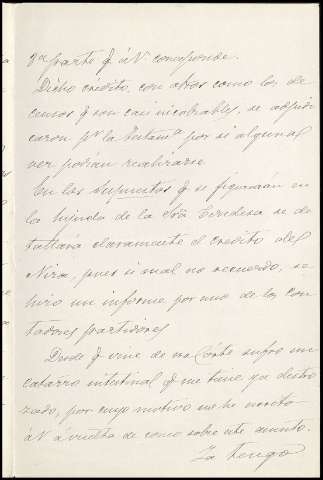 qe parte q á V corresponde.
Dicho crédito, con otros como los de
censos q son casi incobrables, se adjudi
caron pr la Testamª por si alguna
vez podian realizarse.
En los Supuestos q se figurarán en
la hijuela de la Sra Condesa se de
tallaria claramente el credito del
Nira, pues si mal no recuerdo, se
hizo un informe por uno de los con
tadores partidores
Desde q vine de esa Córte sufro un
catarro intestinal q me tiene ya destro
zado, por cuyo motivo no he escrito
á V á vuelta de correo sobre este asunto.
La tengo